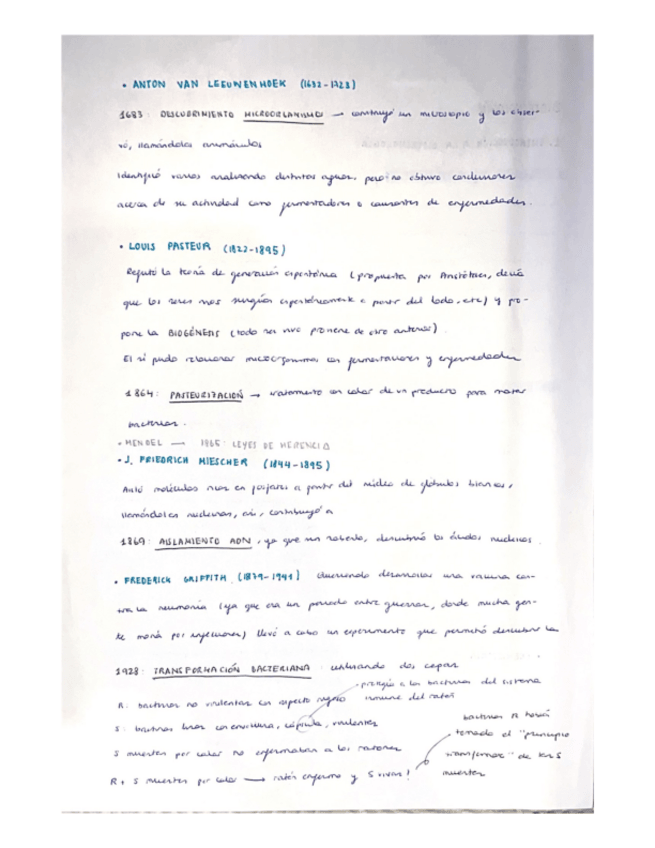 • ANTON VAN LEEUWENHOEK (1632-1723)
1683: DESCUBRIMIENTO MICROORGANISMOS → construyó un microscopio y los obser-
vó, llamándolos animáculos
Identificó varios analizando distintas aguas, pero no obtuvo conclusiones
acerca de su actividad como fermentadores o causantes de enfermedades.
• LOUIS PASTEUR (1822-1895)
Refutó la teoría de generación espontánea (propuesta por Aristóteles, decía
que los seres vivos surgían espontáneamente a partir del lodo, etc) y pro-
pone la BIOGÉNESIS (todo ser vivo proviene de otro anterior).
El sí pudo relacionar microorganismos con fermentaciones y enfermedades
1864: PASTEURIZACIÓN → tratamiento con calor de un producto para matar
bacterias.
• MENDEL — 1865: LEYES DE HERENCIA
• J. FRIEDRICH MIESCHER (1844-1895)
Aisló moléculas ricas en fosfatos a partir del núcleo de glóbulos blancos,
llamándolas nucleínas, así, contribuyó a
1869: AISLAMIENTO ADN, ya que sin saberlo, descubrió los ácidos nucleicos.
• FREDERICK GRIFFITH (1879-1941) queriendo desarrollar una vacuna con-
tra la neumonía (ya que era un periodo entre guerras, donde mucha gen-
te moría por infecciones) llevó a cabo un experimento que permitió descubrir la
1928: TRANSFORMACIÓN BACTERIANA utilizando dos cepas
protegía a las bacterias del sistema
inmune del ratón
R: bacterias no virulentas con aspecto rugoso
S: bacterias lisas con envoltura, cápsula, virulentas
S muertas por calor no enfermaban a los ratones
R + S muertas por calor → ratón enfermo y S vivas!
bacterias R habían
tomado el "principio
transformante" de las S
muertas